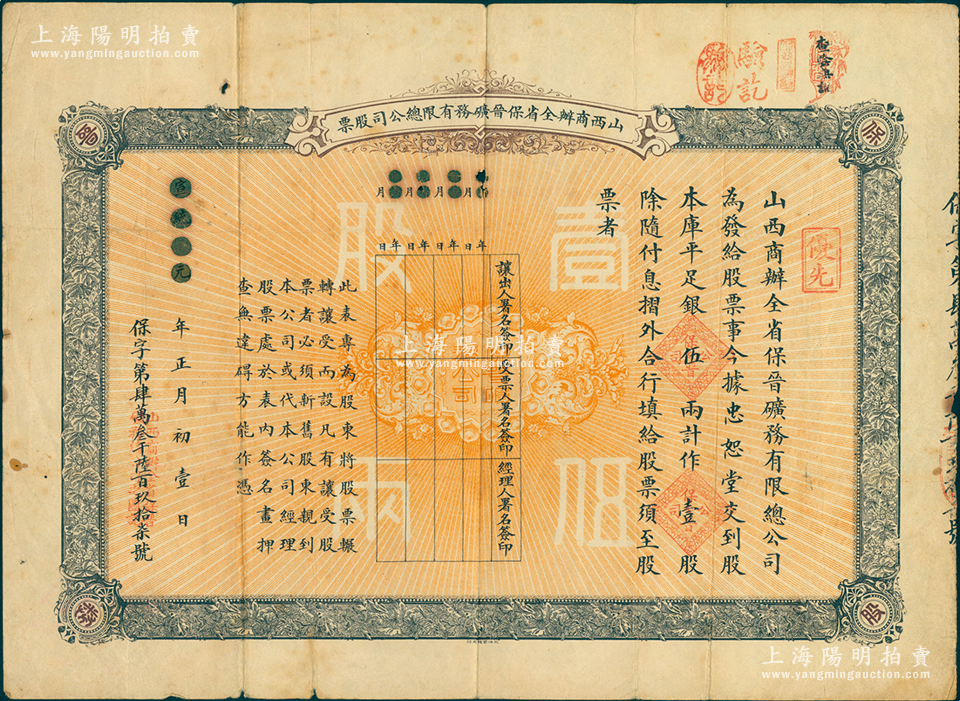 上海陽明拍賣
www.yangmingauction.com
驗訖
查合無訛
山西商辦全省保晉礦務有限總公司股票
保
晉
股
壹股
伍兩
優先
山西商辦全省保晉礦務有限總公司
為發給股票事今據忠恕堂交到股
本庫平足銀伍兩計作壹股
除隨付息摺外合行填給股票須至股
票者
讓出人署名簽印
受票人署名簽印
經理人署名簽印
年 月 日
年 月 日
年 月 日
年 月 日
此表專為股東將股票輾
轉讓受而設凡有讓受股
票者必須新舊股東親到
本公司或代本公司經理
股票處於表內簽名畫押
查無違碍方能作憑
元年正月初壹日
保字第肆萬叁千陸百玖拾柒號
上海陽明拍賣
www.yangmingauction.com
上海陽明拍賣
www.yangmingauction.com